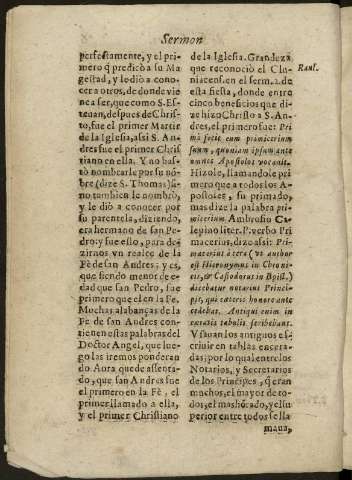 Sermon
perfectamente, y el pri-
mero q̃ predicò a su Ma
gestad, y lediò a cono-
cer a otros, de donde vie
ne a ser, que como S. Es-
teuan, despues de Chris-
to, fue el primer Martir
de la Iglesia, assi S. An-
dres fue el primer Chris
tiano en ella. Y no bas-
tò nombrarle por su nõ-
bre (dize S. Thomas) si-
no tambien le nombrò,
y le diò a conocer por
su parentela, diziendo,
era hermano de san Pe-
dro; y fue ello, para de-
zirnos vn realce de la
Fè de san Andres; y es,
que siendo menor de e-
dad que san Pedro, fue
primero que el en la Fe.
Muchas alabanças de la
Fe de san Andres con-
tienen estas palabras del
Doctor Angel, que lue-
go las iremos ponderan
do. Aora quede assenta-
do, que san Andres fue
el primero en la Fè, el
primer llamado a ella,
y el primer Christiano
de la Iglesia. Grandeza
que reconociò el Clu-
niacens. en el serm. 2. de
esta fiesta, donde entre
cinco beneficios que di-
ze hizo Christo a S. An-
dres, el primero fue: Pri
mò fecit eum primicerium
suum, quoniam ipsum ante
omnes Apostolos vocauit.
Hizole, llamandole pri
mero que a todos los A-
postoles, su primado,
mas dize la palabra pri-
micerium Ambrosiu Ca-
lepino liter. P. verbo Pri
macerius, dizo assi: Pri-
macerius à cera (vt author
est Hieronymus in Chroni-
cis, & Casiodorus in Epist.)
dicebatur notarius Princi-
pis, qui cæteris honore ante
cedebat. Antiqui enim in
ceratis tabulis scribebant.
Vsauan los antiguos es-
criuir en tablas encera-
das; por lo qual entre los
Notarios, y Secretarios
de los Principes, q̃ eran
muchos, el mayor de to-
dos, el mas hõrado, y el su
perior entre todos se lla
maua,
Raul.